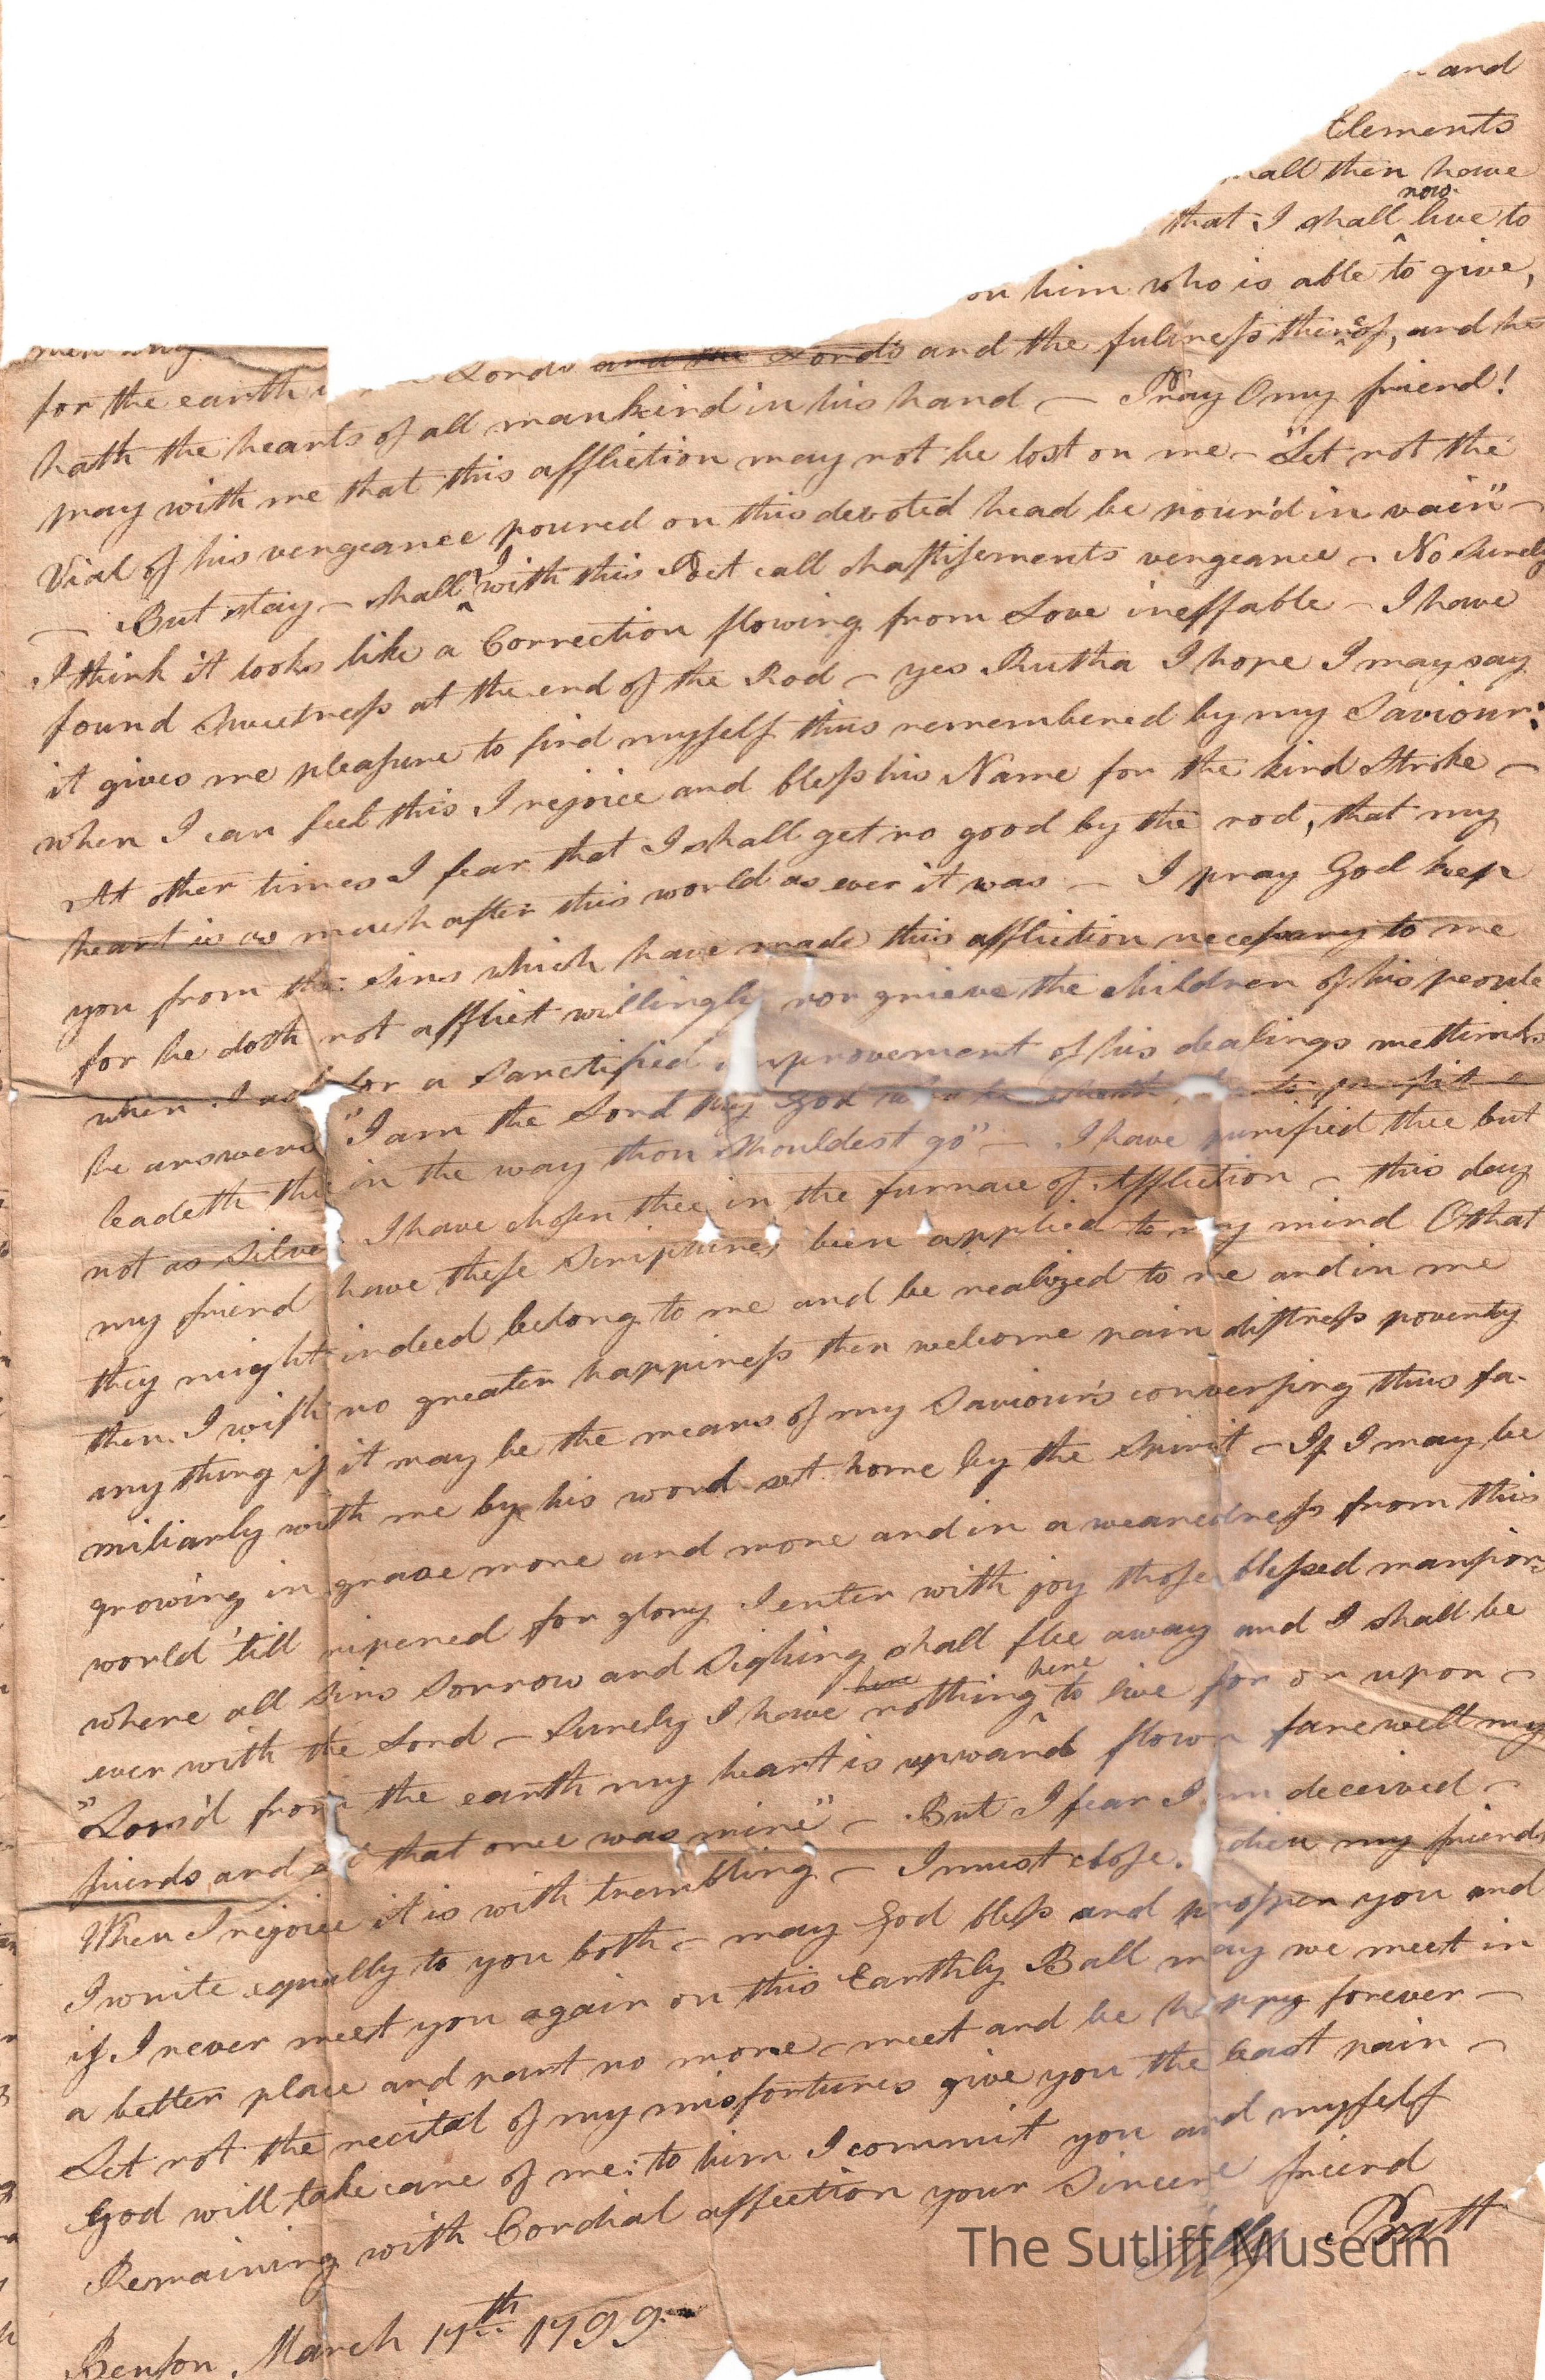 and
Elements
shall then have
that I shall now live to
on him who is able to give,
for the earth Lords and the Lords and the fulness thereof, and he
hath the hearts of all mankind in his hand — Pray O my friend!
pray with me that this affliction may not be lost on me — "Let not the
Vial of his vengeance poured on this devoted head be pour'd in vain" —
— But stay — shall I with this Poet call chastisements vengeance — No Surely
I think it looks like a Correction flowing from Love ineffable — I have
found Sweetness at the end of the Rod — yes Rutha I hope I may say
it gives me pleasure to find myself thus remembered by my Saviour:
when I can feel this I rejoice and bless his Name for the kind Stroke —
At other times I fear that I shall get no good by the rod, that my
heart is as much after this world as ever it was — I pray God keep
you from the Sins which have made this affliction necessary to me
for he doth not afflict willingly nor grieve the children of his people
when I ask for a Sanctified improvement of his dealings methinks
he answers "I am the Lord thy God who teacheth thee to profit
leadeth thee in the way thou shouldest go" — I have purified thee but
not as Silver I have chosen thee in the furnace of Affliction — this day
my friend have these Scriptures been applied to my mind O that
they might indeed belong to me and be realized to me and in me
then I wish no greater happiness then welcome pain distress poverty
any thing if it may be the means of my Saviour's conversing thus fa-
miliarly with me by his word set home by the Spirit — If I may be
growing in grace more and more and in a weanedness from this
world 'till ripened for glory I enter with joy those blessed mansions
where all Sins Sorrow and Sighing shall flee away and I shall be
ever with the Lord — Surely I have here nothing here to live for or upon —
"Loos'd from the earth my heart is upward flown farewell my
friends and all that once was mine" — But I fear I am deceived —
When I rejoice it is with trembling — I must close. Adieu my friends
I write equally to you both — may God bless and prosper you and
if I never meet you again on this Earthly Ball may we meet in
a better place and part no more — meet and be happy forever —
Let not the recital of my misfortunes give you the least pain —
God will take care of me: to him I commit you and myself
Remaining with Cordial affection your Sincere friend
Pratt
The Sutliff Museum
Benson March 17th 1799